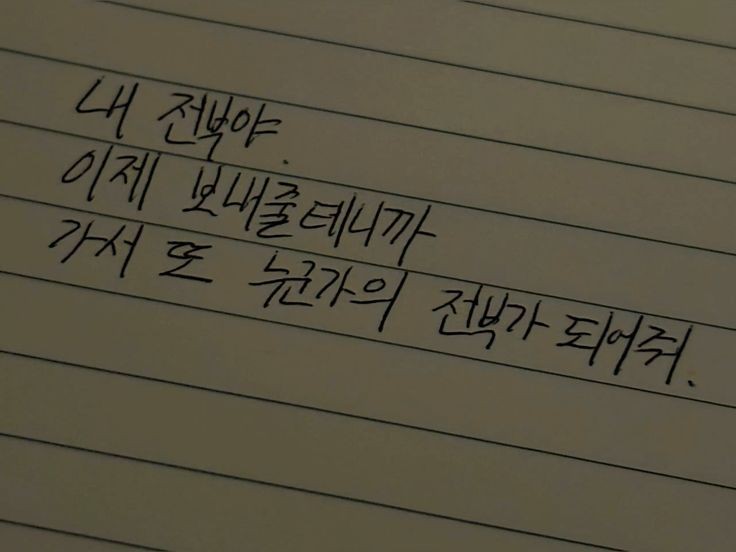 내 전부야.
이제 보내줄테니까
가서 또 누군가의 전부가 되어줘.